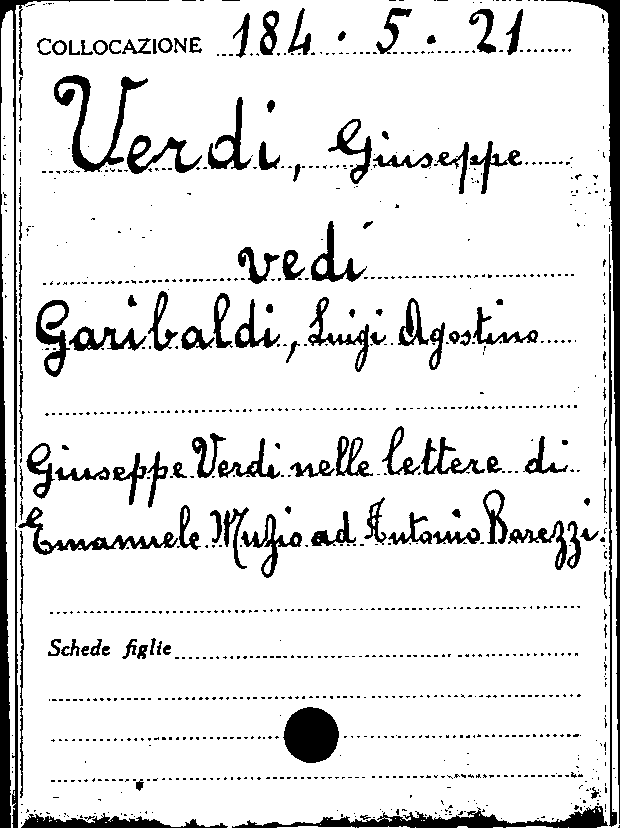 COLLOCAZIONE 184 · 5 · 21
Verdi, Giuseppe
vedi
Garibaldi, Luigi Agostino
Giuseppe Verdi nelle lettere di
Emanuele Muzio ad Antonio Barezzi.
Schede figlie